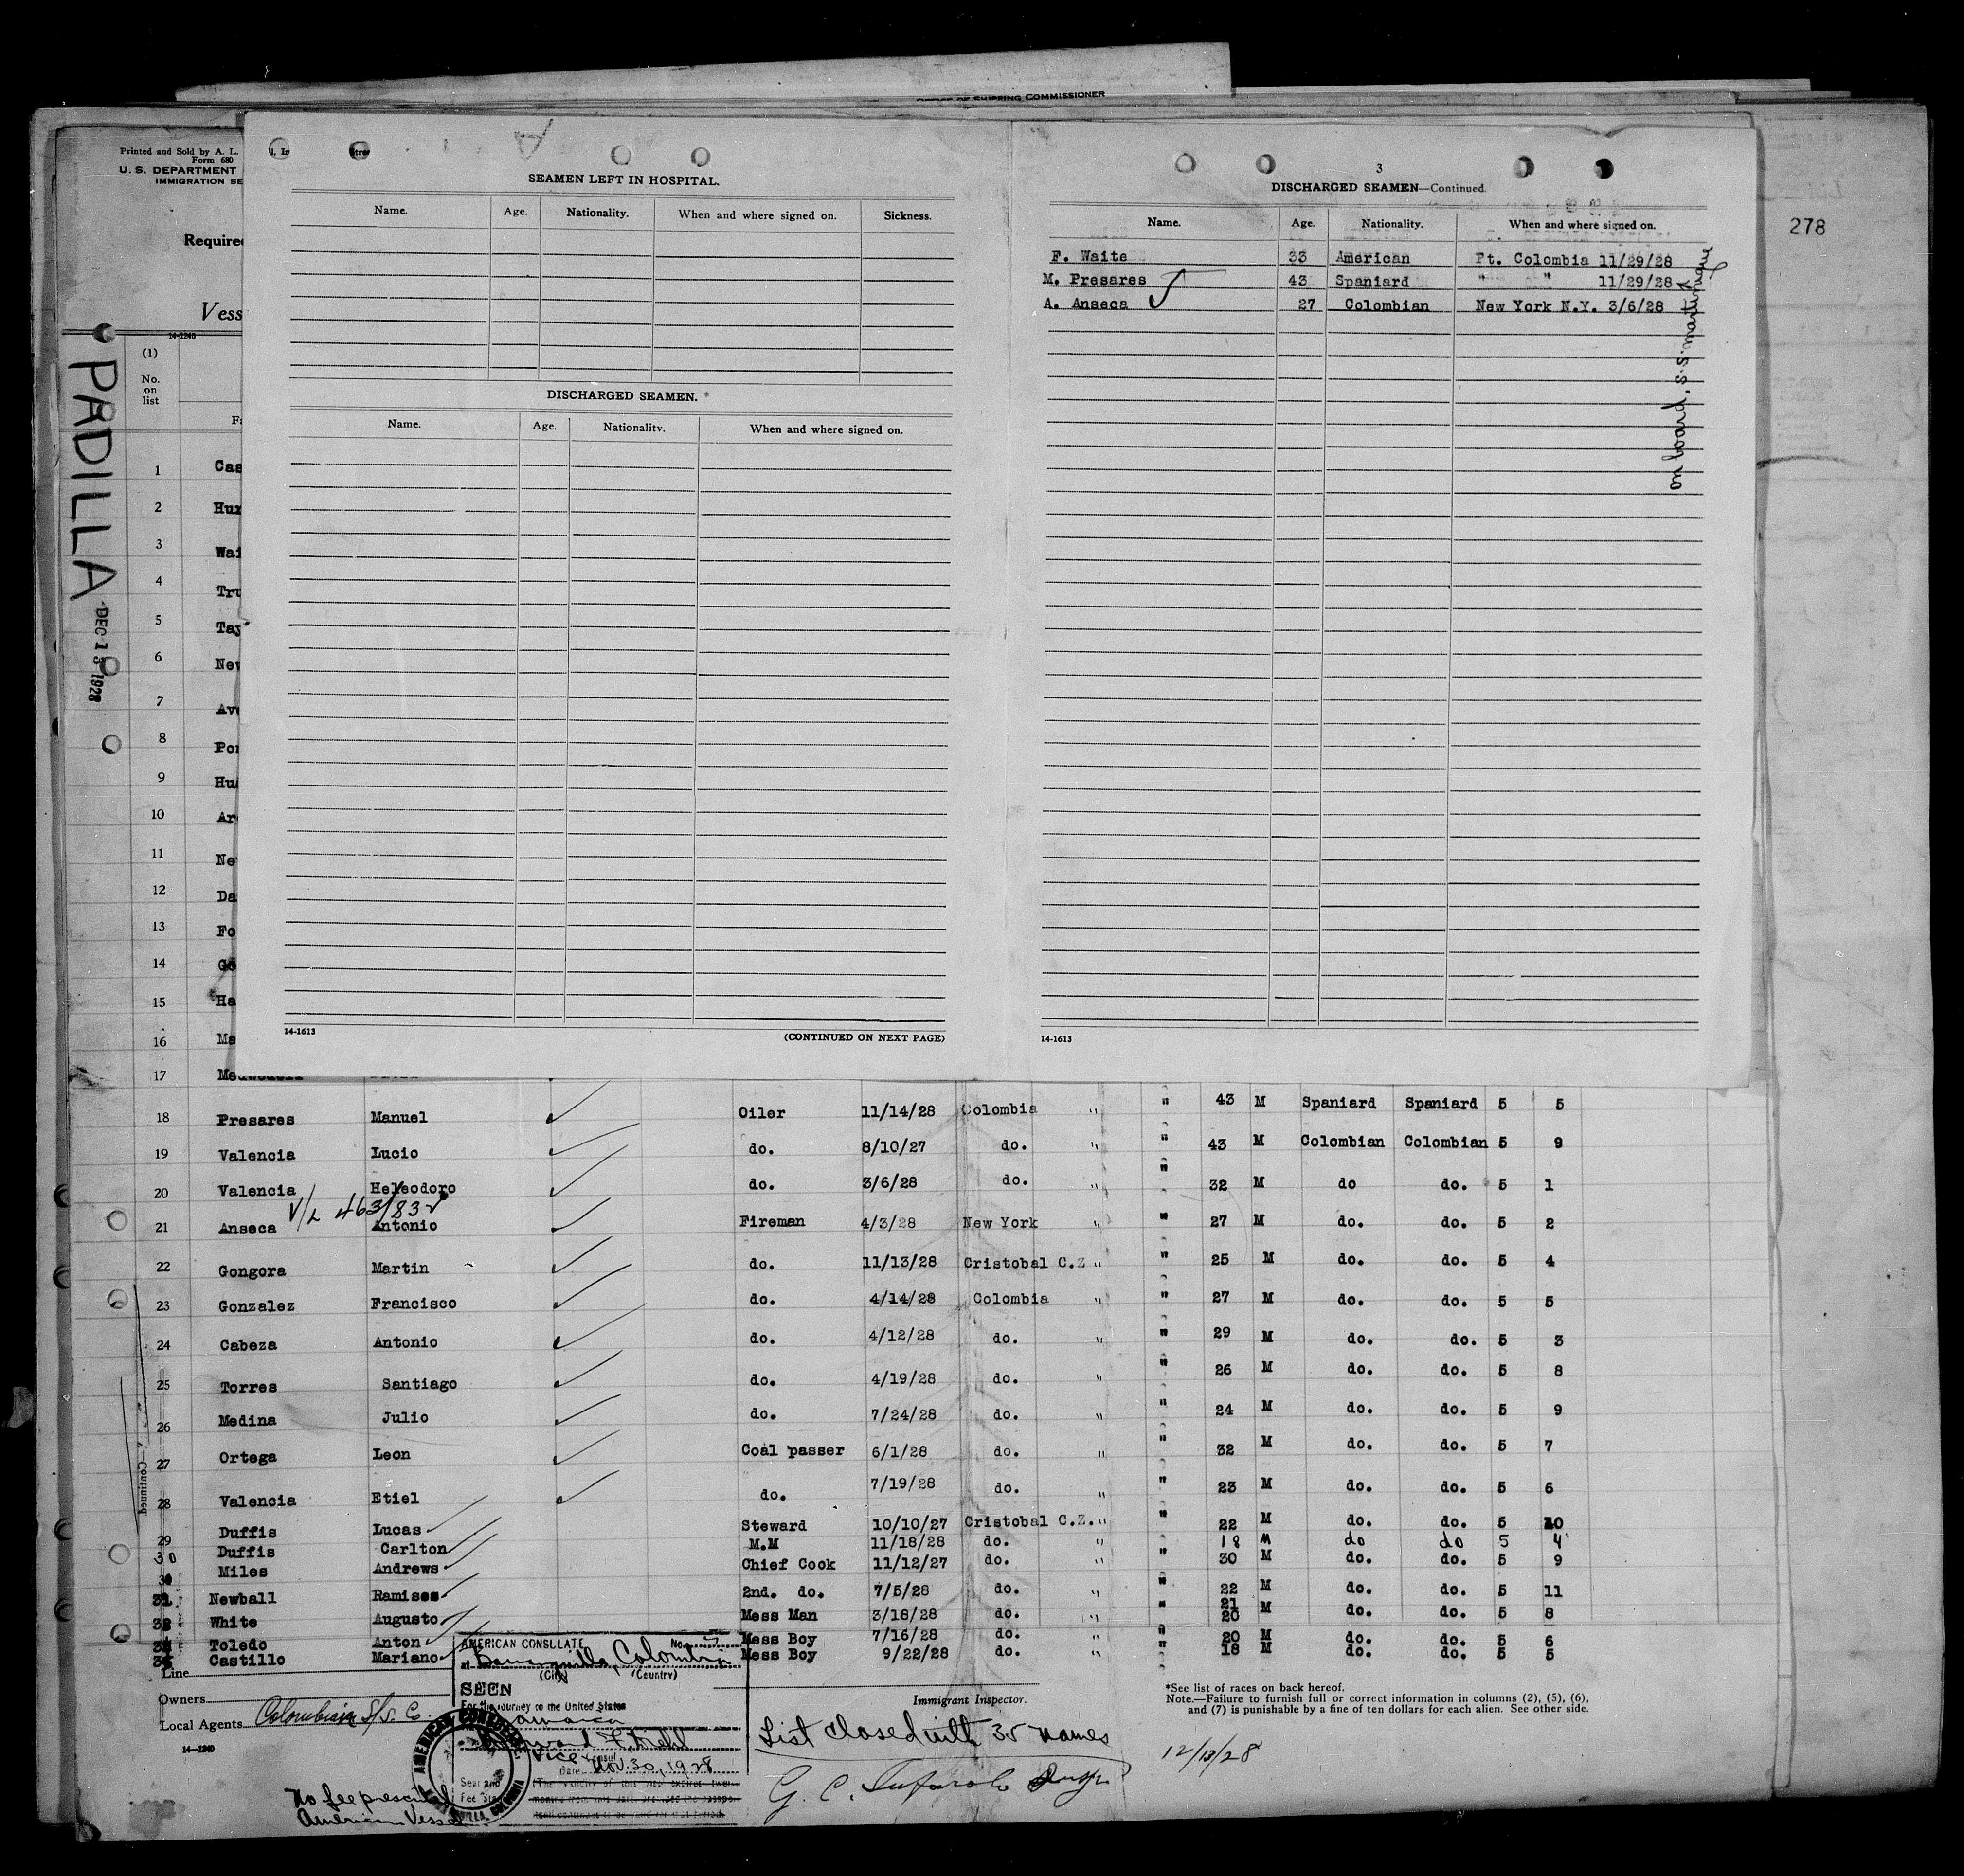 OFFICE OF SHIPPING COMMISSIONER
Printed and Sold by A. L.
Form 680
U. S. DEPARTMENT
IMMIGRATION SE
Required
Vess
14-1240
(1)
No.
on
list
PADILLA
DEC 13 1928
278
SEAMEN LEFT IN HOSPITAL.
Name. Age. Nationality. When and where signed on. Sickness.
DISCHARGED SEAMEN.
Name. Age. Nationality. When and where signed on.
14-1613
(CONTINUED ON NEXT PAGE)
3
DISCHARGED SEAMEN—Continued.
Name. Age. Nationality. When and where signed on.
F. Waite 33 American Pt. Colombia 11/29/28
M. Presares 43 Spaniard " " 11/29/28
A. Anseca 27 Colombian New York N.Y. 3/6/28
on board, S.S. Martinique
14-1613
1 Cas
2 Hur
3 Wai
4 Tru
5 Tay
6 New
7 Ave
8 Por
9 Hud
10 Ar
11 Ne
12 Da
13 Fo
14 Go
15 Ha
16 Ma
17
18 Presares Manuel Oiler 11/14/28 Colombia " " 43 M Spaniard Spaniard 5 5
19 Valencia Lucio do. 8/10/27 do. " " 43 M Colombian Colombian 5 9
20 Valencia Heleodoro do. 3/6/28 do. " " 32 M do do. 5 1
V/L 463/832
21 Anseca Antonio Fireman 4/3/28 New York " " 27 M do. do. 5 2
22 Gongora Martin do. 11/13/28 Cristobal C.Z " " 25 M do. do. 5 4
23 Gonzalez Francisco do. 4/14/28 Colombia " " 27 M do. do. 5 5
24 Cabeza Antonio do. 4/12/28 do. " " 29 M do. do. 5 3
25 Torres Santiago do. 4/19/28 do. " " 26 M do. do. 5 8
26 Medina Julio do. 7/24/28 do. " " 24 M do. do. 5 9
27 Ortega Leon Coal passer 6/1/28 do. " " 32 M do. do. 5 7
28 Valencia Etiel do. 7/19/28 do. " " 23 M do. do. 5 6
29 Duffis Lucas Steward 10/10/27 Cristobal C.Z. " " 22 M do. do. 5 10
30 Duffis Carlton M.M 11/18/28 do. " 18 M do do 5 4
Miles Andrews Chief Cook 11/12/27 do. " " 30 M do. do. 5 9
Newball Ramises 2nd. do. 7/5/28 do. " " 22 M do. do. 5 11
White Augusto Mess Man 3/18/28 do. " " 21 20 M do. do. 5 8
Toledo Anton Mess Boy 7/16/28 do. " " 20 M do. do. 5 6
Castillo Mariano Mess Boy 9/22/28 do. " " 18 M do. do. 5 5
—Continued
Line
Owners
Local Agents Colombian S/S. Co.
14—1240
AMERICAN CONSULATE No.
at Barranquilla, Colombia
(City) (Country)
SEEN
For the journey to the United States
Vice Consul
Date Nov. 30, 1928
Seal and
Fee Stamp
AMERICAN CONSULATE
No fee prescribed
American Vessel
Immigrant Inspector.
List closed with 35 names
12/13/28
*See list of races on back hereof.
Note.—Failure to furnish full or correct information in columns (2), (5), (6),
and (7) is punishable by a fine of ten dollars for each alien. See other side.